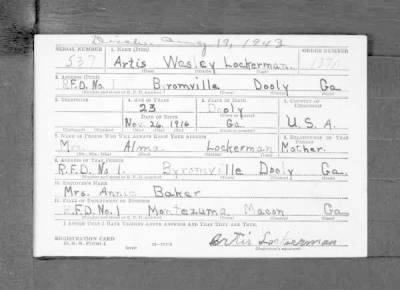 Aug 19, 1943
SERIAL NUMBER 1. NAME (Print) ORDER NUMBER
537 Artis Wesley Lockerman 1370
(First) (Middle) (Last)
2. ADDRESS (Print)
R.F.D. No. 1 Byromville Dooly Ga
3. TELEPHONE 4. AGE IN YEARS 5. PLACE OF BIRTH 6. COUNTRY OF CITIZENSHIP
23 Dooly
DATE OF BIRTH
Nov. 26, 1916 Ga U.S.A.
7. NAME OF PERSON WHO WILL ALWAYS KNOW YOUR ADDRESS 8. RELATIONSHIP OF THAT PERSON
Mrs. Alma Lockerman Mother.
9. ADDRESS OF THAT PERSON
R.F.D. No 1. Byromville Dooly Ga.
10. EMPLOYER'S NAME
Mrs. Annie Baker
11. PLACE OF EMPLOYMENT OR BUSINESS
R.F.D. No. 1 Montezuma Macon Ga
I AFFIRM THAT I HAVE VERIFIED ABOVE ANSWERS AND THAT THEY ARE TRUE.
REGISTRATION CARD
D. S. S. Form 1
Artis Lockerman
(Registrant's signature)